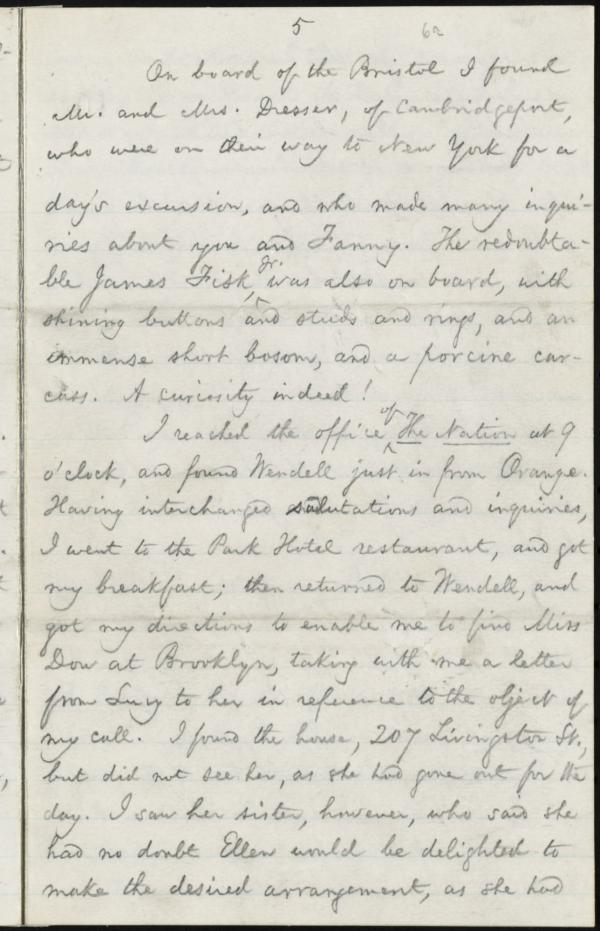 5 6a
On board of the Bristol I found
Mr. and Mrs. Dresser, of Cambridgeport,
who were on their way to New York for a
day's excursion, and who made many inqui-
ries about you and Fanny. The redoubta-
ble James Fisk, Jr. was also on board, with
shining buttons and studs and rings, and an
immense short bosom, and a porcine car-
cass. A curiosity indeed!
I reached the office of The Nation at 9
o'clock, and found Wendell just in from Orange.
Having interchanged salutations and inquiries,
I went to the Park Hotel restaurant, and got
my breakfast; then returned to Wendell, and
got my directions to enable me to find Miss
Dow at Brooklyn, taking with me a letter
from Lucy to her in reference to the object of
my call. I found the house, 207 Livingston St.,
but did not see her, as she had gone out for the
day. I saw her sister, however, who said she
had no doubt Ellen would be delighted to
make the desired arrangement, as she had